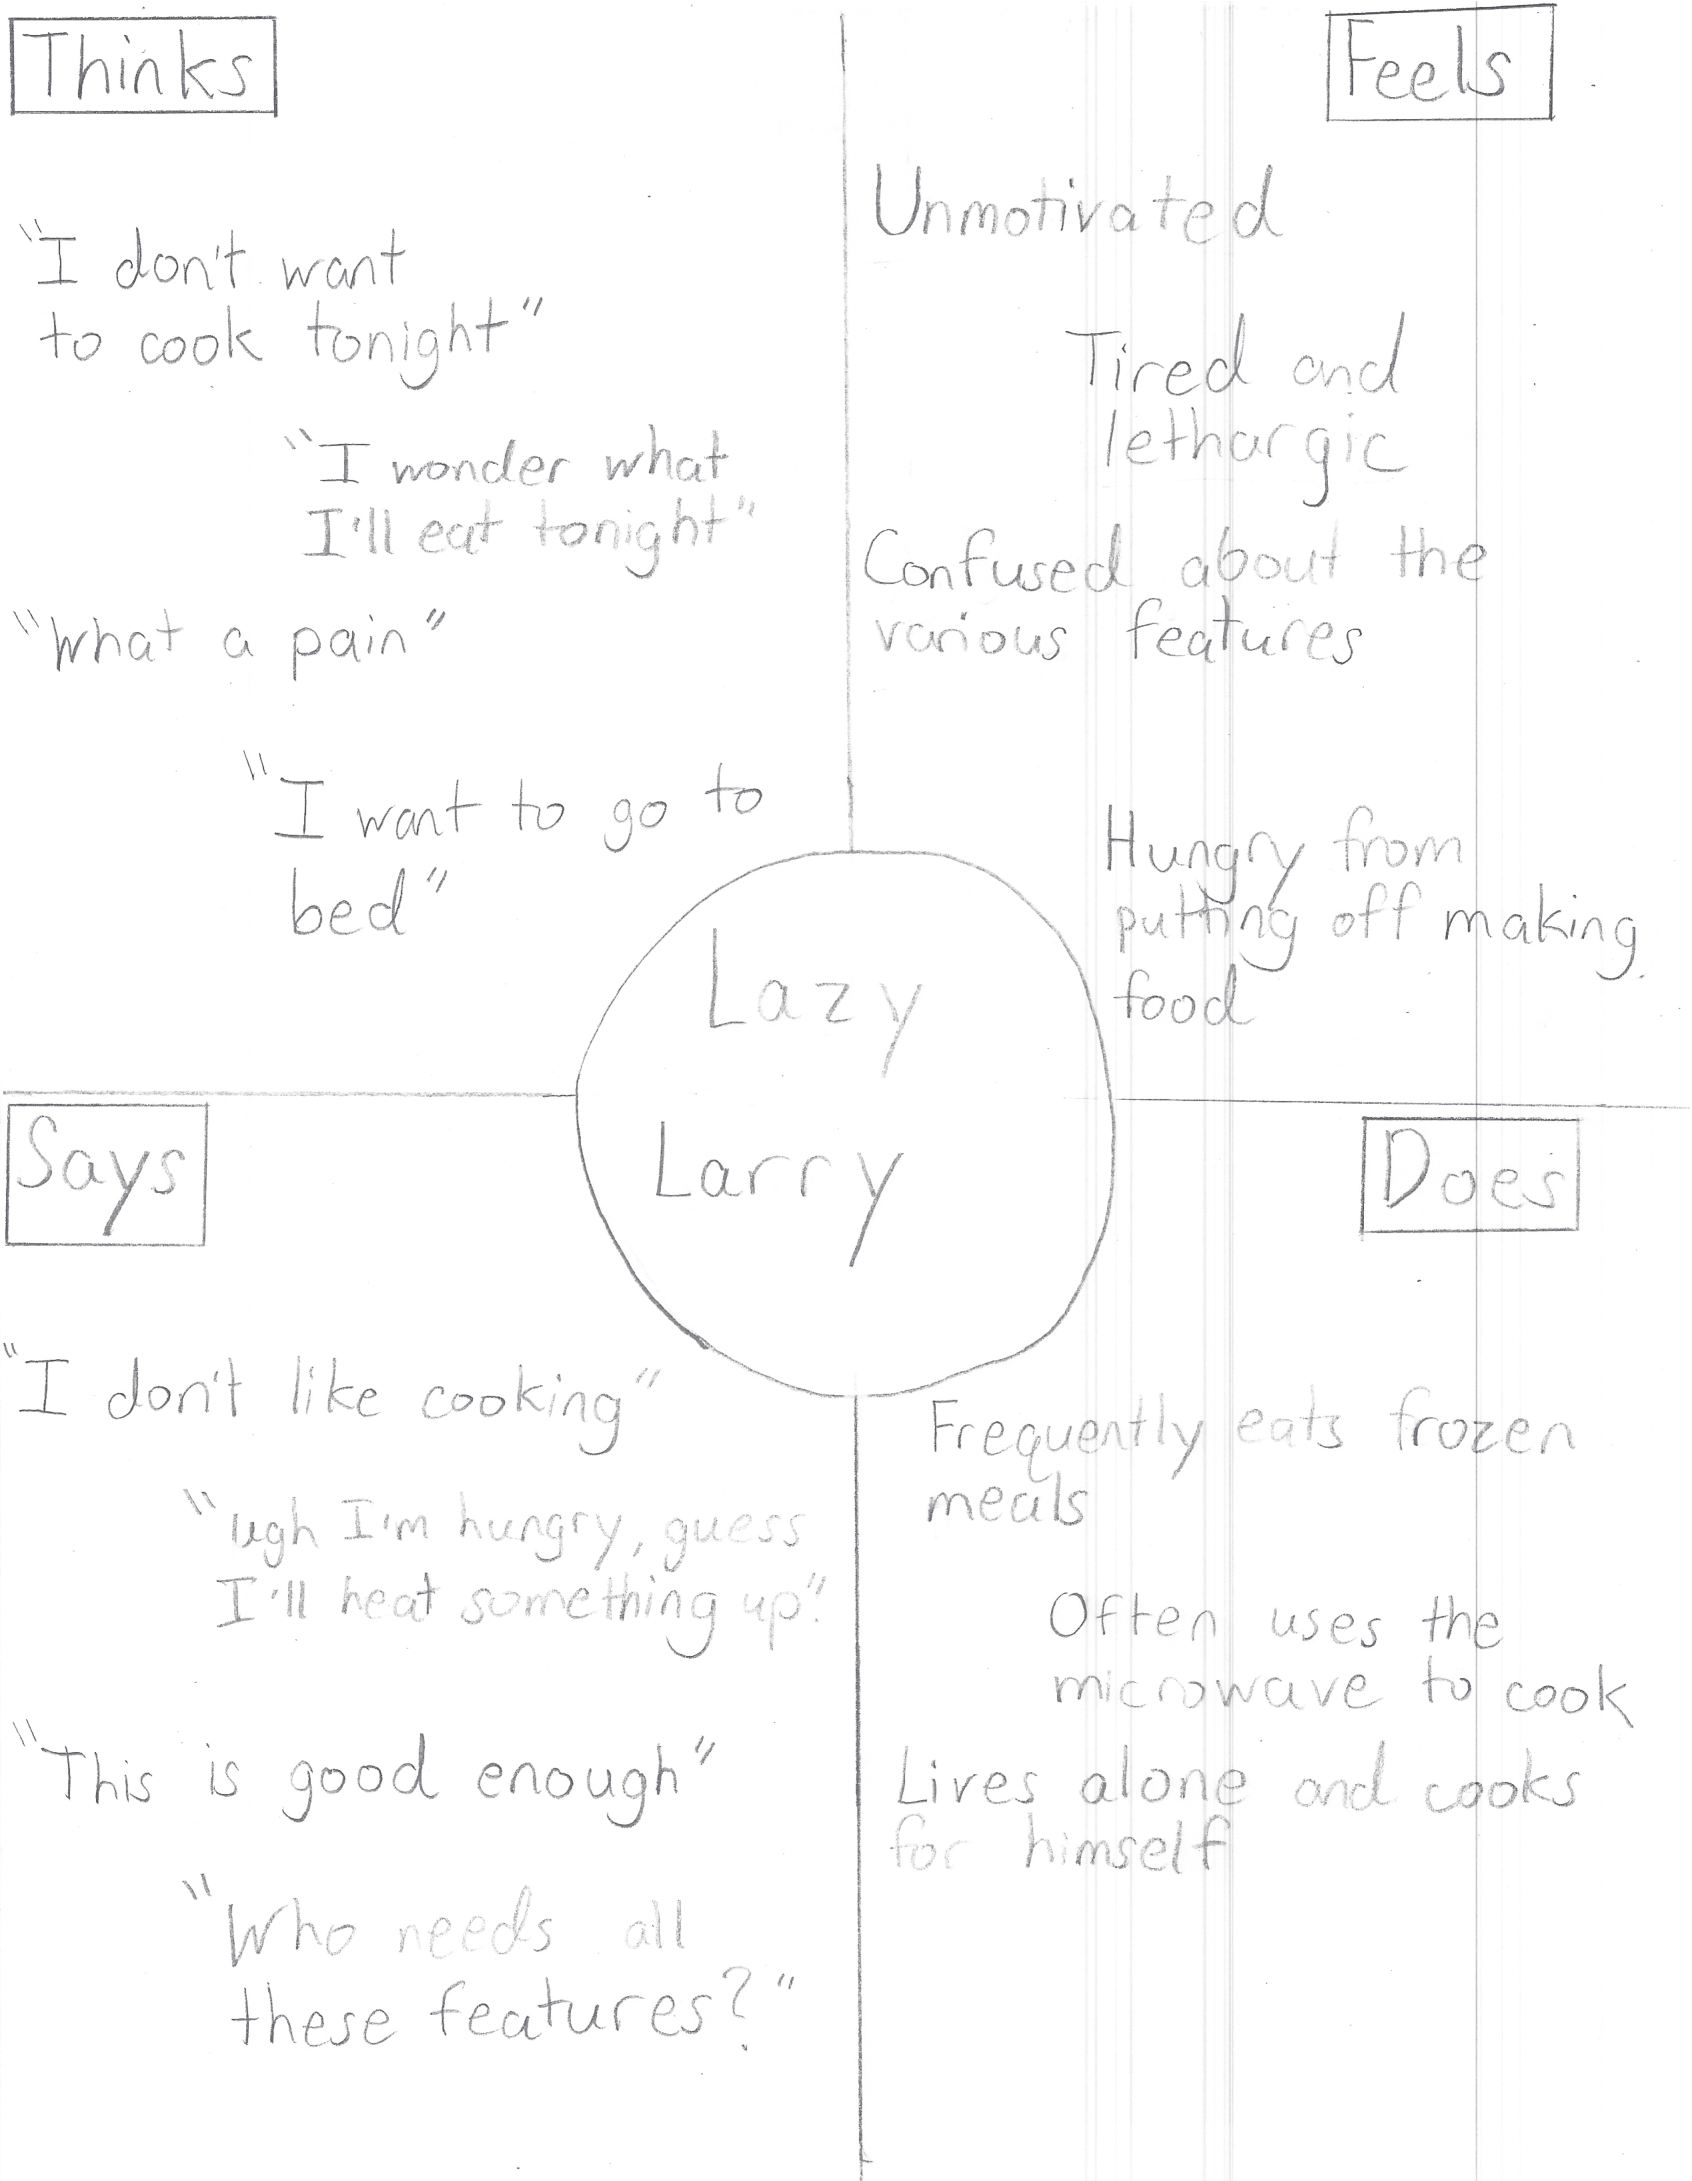 Thinks
"I don't want
to cook tonight"
"I wonder what
I'll eat tonight"
"What a pain"
"I want to go to
bed"
Feels
Unmotivated
Tired and
lethargic
Confused about the
various features
Hungry from
putting off making
food
Lazy
Larry
Says
"I don't like cooking"
"ugh I'm hungry, guess
I'll heat something up"
"This is good enough"
"Who needs all
these features?"
Does
Frequently eats frozen
meals
Often uses the
microwave to cook
Lives alone and cooks
for himself